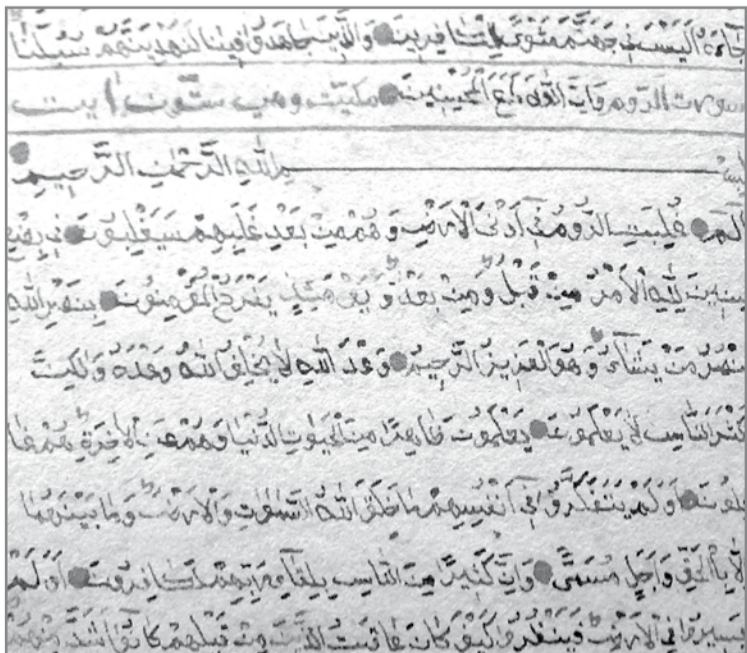 جَاءَهُ أَلَيْسَ فِي جَهَنَّمَ مَثْوًى لِلْكَافِرِينَ وَالَّذِينَ جَاهَدُوا فِينَا لَنَهْدِيَنَّهُمْ سُبُلَنَا
سورت الروم وَإِنَّ اللَّهَ لَمَعَ الْمُحْسِنِينَ مكيت وهي ستون آيت
بِسْمِ اللَّهِ الرَّحْمٰنِ الرَّحِيمِ
الٓمٓ غُلِبَتِ الرُّومُ فِي أَدْنَى الْأَرْضِ وَهُمْ مِنْ بَعْدِ غَلَبِهِمْ سَيَغْلِبُونَ فِي بِضْعِ
سِنِينَ لِلَّهِ الْأَمْرُ مِنْ قَبْلُ وَمِنْ بَعْدُ وَيَوْمَئِذٍ يَفْرَحُ الْمُؤْمِنُونَ بِنَصْرِ اللَّهِ
يَنْصُرُ مَنْ يَشَاءُ وَهُوَ الْعَزِيزُ الرَّحِيمُ وَعْدَ اللَّهِ لَا يُخْلِفُ اللَّهُ وَعْدَهُ وَلَكِنَّ
أَكْثَرَ النَّاسِ لَا يَعْلَمُونَ يَعْلَمُونَ ظَاهِرًا مِنَ الْحَيٰوتِ الدُّنْيَا وَهُمْ عَنِ الْآخِرَةِ هُمْ غَا
فِلُونَ أَوَلَمْ يَتَفَكَّرُوا فِي أَنْفُسِهِمْ مَا خَلَقَ اللَّهُ السَّمٰوٰتِ وَالْأَرْضَ وَمَا بَيْنَهُمَا
إِلَّا بِالْحَقِّ وَأَجَلٍ مُسَمًّى وَإِنَّ كَثِيرًا مِنَ النَّاسِ بِلِقَاءِ رَبِّهِمْ لَكَافِرُونَ أَوَلَمْ
يَسِيرُوا فِي الْأَرْضِ فَيَنْظُرُوا كَيْفَ كَانَ عَاقِبَتُ الَّذِينَ مِنْ قَبْلِهِمْ كَانُوا أَشَدَّ مِنْهُمْ